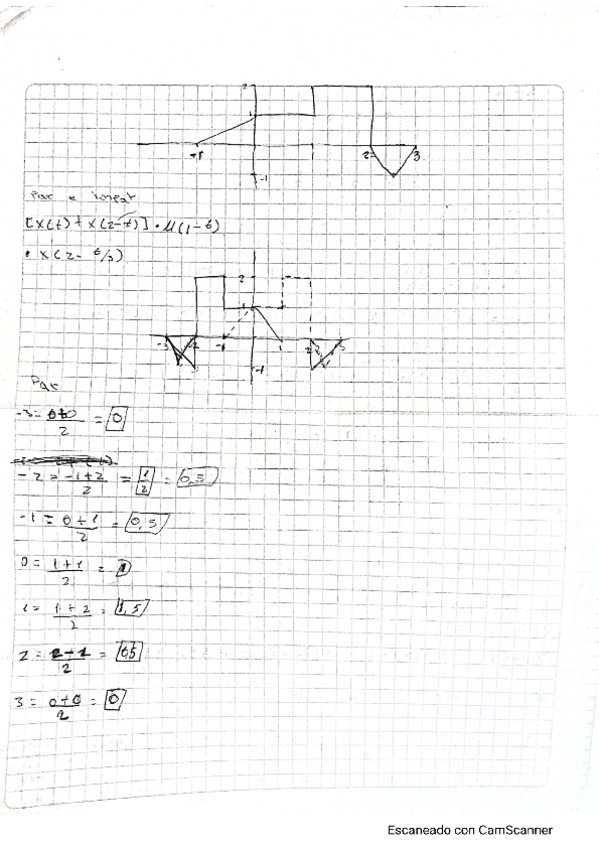 2
1
-1 2 3
-1
Par e impar
[x(t) + x(2-t)] · u(1-t)
• x(2 - t/3)
2
1
-3 -2 -1 1 2 3
-1
Par
-3 = 0+0/2 = 0
-2 = -1+2/2 = 1/2 = 0,5
-1 = 0+1/2 = 0,5
0 = 1+1/2 = 1
1 = 1+2/2 = 1,5
2 = 2-1/2 = 0,5
3 = 0+0/2 = 0
Escaneado con CamScanner